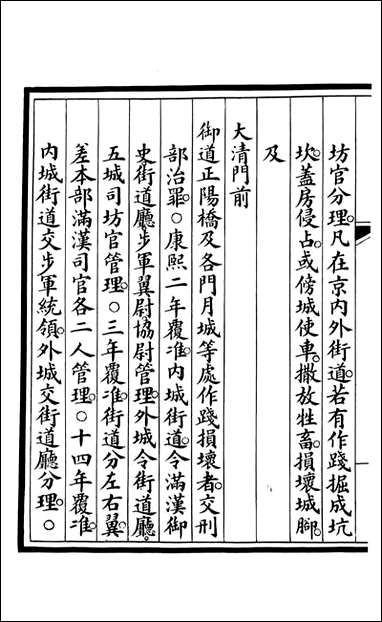 坊官分理。凡在京内外街道。若有作踐掘成坑
坎。蓋房侵占。或傍城使車。撒放牲畜。損壞城腳。
及
大清門前
御道正陽橋及各門月城等處作踐損壞者。交刑
部治罪。○康熙二年覆准。内城街道。令滿漢御
史街道廳步軍翼尉協尉管理。外城令街道廳。
五城司坊官管理。○三年覆准。街道分左右翼。
差本部滿漢司官各二人管理。○十四年覆准。
内城街道交步軍統領。外城交街道廳分理。○